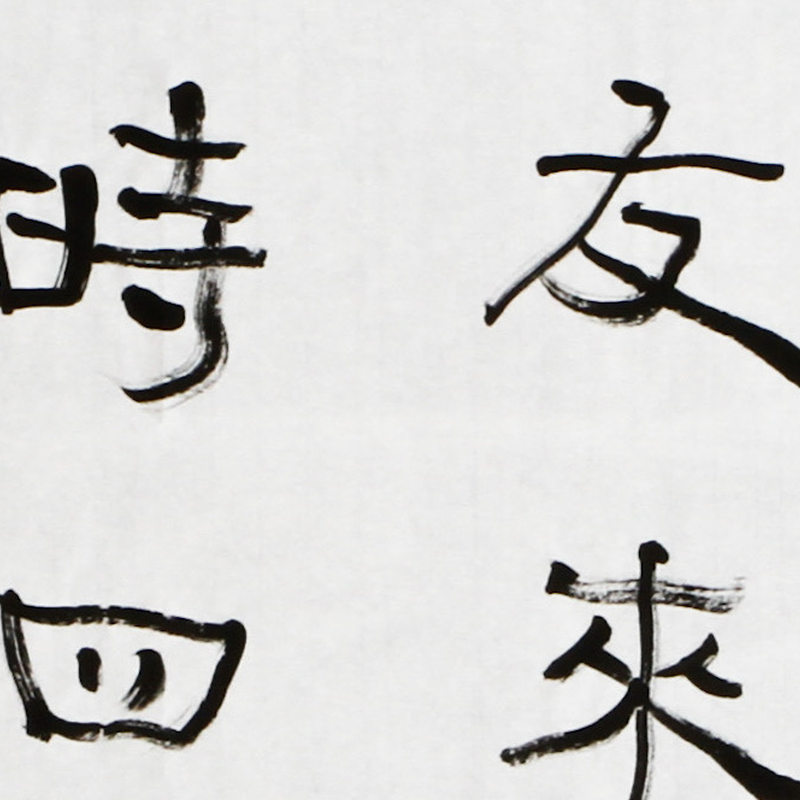 友來
時四